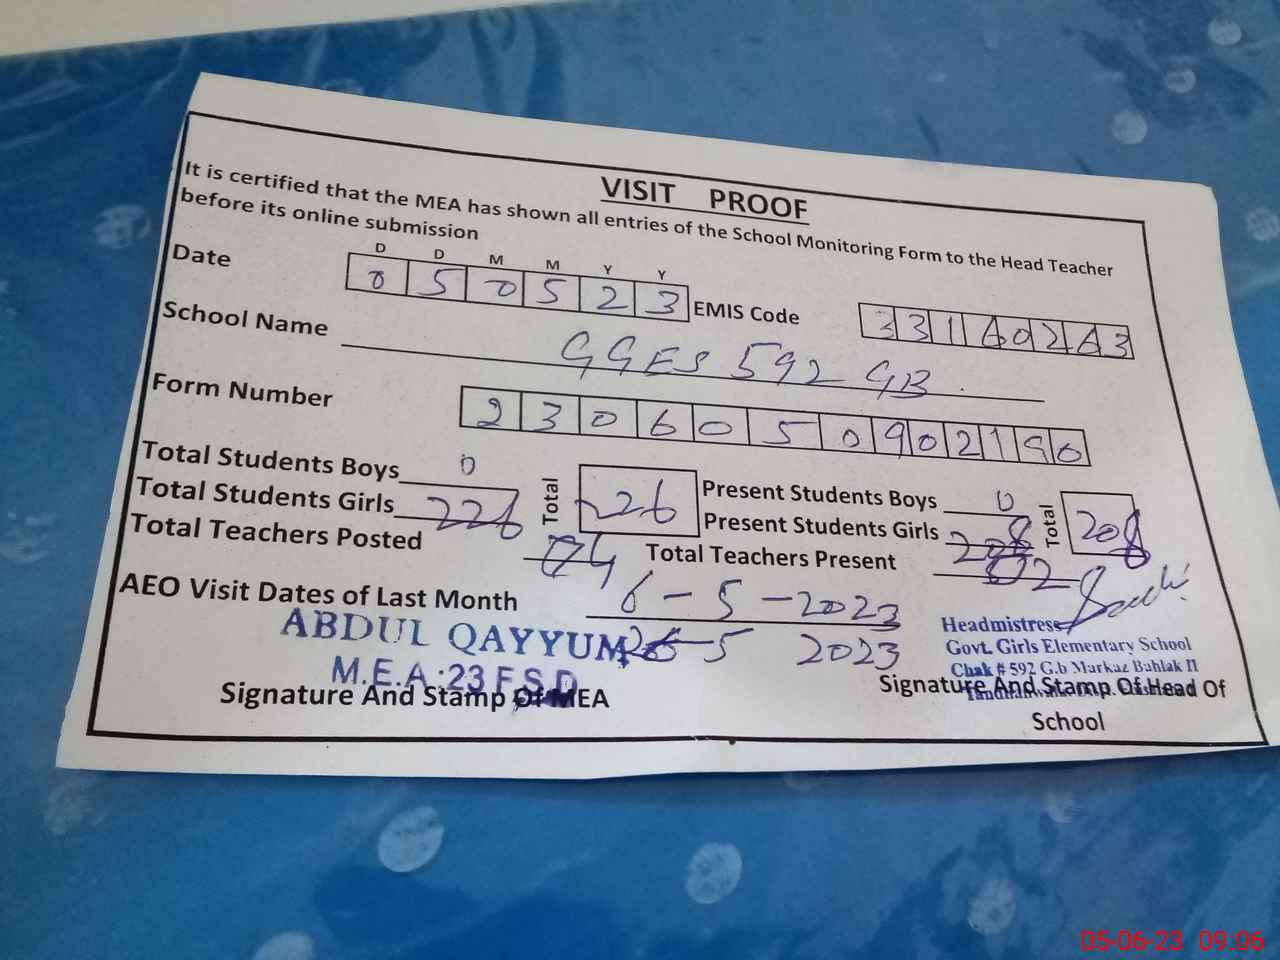 VISIT PROOF
It is certified that the MEA has shown all entries of the School Monitoring Form to the Head Teacher
before its online submission
D D M M Y Y
Date 0 5 0 5 2 3 EMIS Code
School Name GGES 592 GB
Form Number 2 3 0 6 0 5 0 9 0 2 1
Total Students Boys 0 Present Students Boys 0
Total Students Girls 226 Total 226 Present Students Girls 208 Total 208
Total Teachers Posted 04 Total Teachers Present 02
AEO Visit Dates of Last Month 6-5-2023
5 2023
ABDUL QAYYUM
M.E.A:23 F.S.D
Signature And Stamp Of MEA
Headmistress
Govt. Girls Elementary School
Chak # 592 G.b Markaz Bahlak II
Signature And Stamp Of Head Of
School
05-06-23 09.06